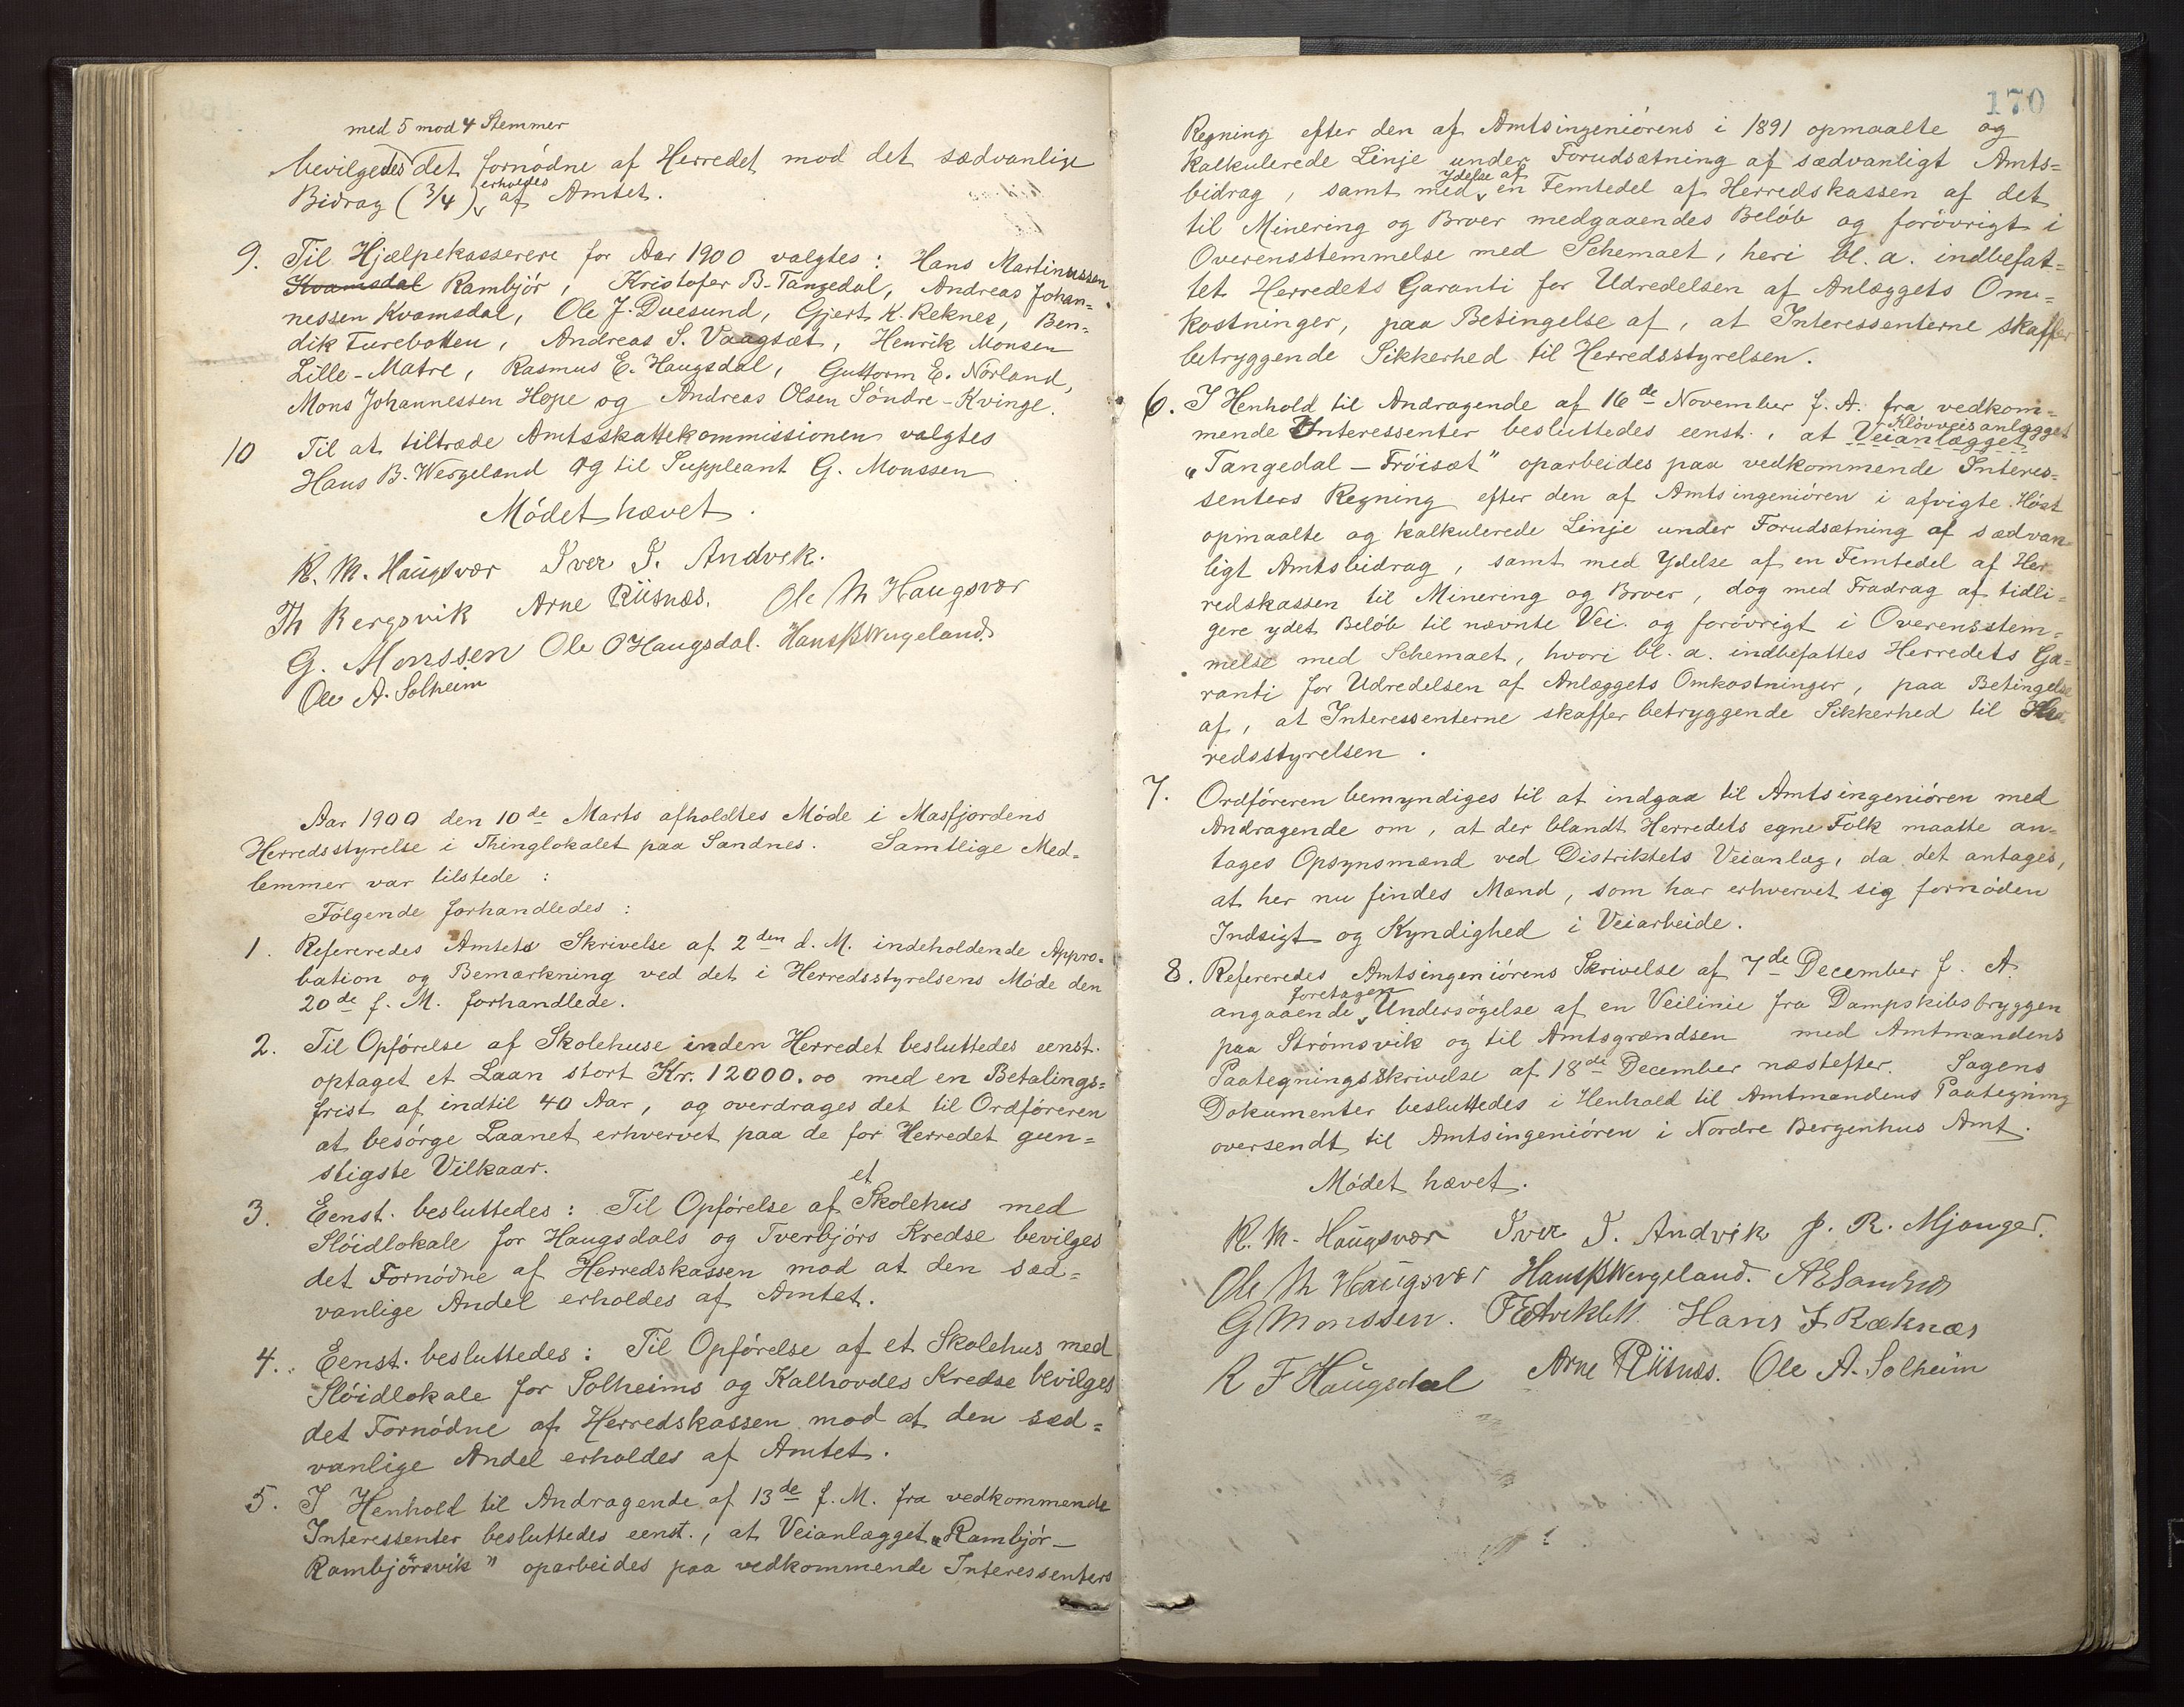 med 5 mod 4 Stemmer
bevilgedes det fornødne af Herredet mod det sædvanlige
erholdes
Bidrag (3/4) af Amtet.
9. Til Hjælpekasserere for Aar 1900 valgtes: Hans Martinussen
Kvamsdal Rambjör, Kristofer B. Tangedal, Andreas Johan=
nessen Kvamsdal, Ole J. Duesund, Gjert K. Reknes, Ben=
dik Furebotten, Andreas S. Vaagsæt, Henrik Monsen
Lille-Matre, Rasmus E. Haugsdal, Guttorm E. Nörland,
Mons Johannessen Hope og Andreas Olsen Söndre-Kvinge.
10 Til at tiltræde Amtsskattekommissionen valgtes
Hans B. Wergeland og til Suppleant G. Monssen
Mödet hævet.
K. M. Haugsvær Iver I. Andvik.
Th Bergsvik Arne Riisnæs. Ole M Haugsvær
G. Monssen Ole O Haugsdal. Hans B Wergeland.
Ole A. Solheim
Aar 1900 den 10de Marts afholdtes Möde i Masfjordens
Herredsstyrelse i Thinglokalet paa Sandnes. Samtlige Med=
lemmer var tilstede:
Fölgende forhandledes:
1. Refereredes Amtets Skrivelse af 2den d. M. indeholdende Appro=
bation og Bemærkning ved det i Herredsstyrelsens Möde den
20de f. M. forhandlede.
2. Til Opförelse af Skolehuse inden Herredet besluttedes eenst.
optaget et Laan stort Kr. 12000.00 med en Betalings=
frist af indtil 40 Aar, og overdrages det til Ordföreren
at besörge Laanet erhvervet paa de for Herredet gun=
stigste Vilkaar.
et
3. Eenst. besluttedes: Til Opförelse af Skolehus med
Slöidlokale for Haugsdals og Tverbjörs Kredse bevilges
det Fornödne af Herredskassen mod at den sæd=
vanlige Andel erholdes af Amtet.
4. Eenst. besluttedes: Til Opförelse af et Skolehus med
Slöidlokale for Solheims og Kalhovdes Kredse bevilges
det Fornödne af Herredskassen mod at den sæd=
vanlige Andel erholdes af Amtet.
5. I Henhold til Andragende af 13de f. M. fra vedkommende
Interessenter besluttedes eenst., at Veianlægget „Rambjör-
Rambjörsvik" oparbeides paa vedkommende Interessenters
170
Regning efter den af Amtsingeniörens i 1891 opmaalte og
kalkulerede Linje under Forudsætning af sædvanligt Amts=
Ydelse af
bidrag, samt med en Femtedel af Herredskassen af det
til Minering og Broer medgaaendes Belöb og forövrigt i
Overensstemmelse med Schemaet, heri bl. a. indbefat=
tet Herredets Garanti for Udredelsen af Anlæggets Om=
kostninger, paa Betingelse af, at Interessenterne skaffer
betryggende Sikkerhed til Herredsstyrelsen.
6. I Henhold til Andragende af 16de November f. A. fra vedkom=
Klövveisanlægget
mende Interessenter besluttedes eenst., at Veianlægget
„Tangedal - Fröisæt" oparbeides paa vedkommende Interes=
senters Regning efter den af Amtsingeniören i afvigte Höst
opmaalte og kalkulerede Linje under Forudsætning af sædvan=
ligt Amtsbidrag, samt med Ydelse af en Femtedel af Her=
redskassen til Minering og Broer, dog med Fradrag af tidli=
gere ydet Belöb til nævnte Vei. og forövrigt i Overensstem=
melse med Schemaet, hvori bl. a. indbefattes Herredets Ga=
ranti for Udredelsen af Anlæggets Omkostninger, paa Betingelse
af, at Interessenterne skaffer betryggende Sikkerhed til Her=
redsstyrelsen.
7. Ordföreren bemyndiges til at indgaa til Amtsingeniören med
Andragende om, at der blandt Herredets egne Folk maatte an=
tages Opsynsmænd ved Distriktets Veianlæg, da det antages,
at her nu findes Mænd, som har erhvervet sig fornöden
Indsigt og Kyndighed i Veiarbeide.
8. Refereredes Amtsingeniörens Skrivelse af 7de December f. A.
foretagen
angaaende Undersögelse af en Veilinie fra Dampskibsbryggen
paa Strömsvik og til Amtsgrændsen med Amtmandens
Paategningsskrivelse af 18de December næstefter. Sagens
Dokumenter besluttedes i Henhold til Amtmandens Paategning
oversendt til Amtsingeniören i Nordre Bergenhus Amt.
Mödet hævet.
K. M. Haugsvær Iver I. Andvik J. R. Mjanger.
Ole M Haugsvær Hans B Wergeland. A E Sandnes
G Monssen. Hans J Ræknæs
R F Haugsdal Arne Riisnæs. Ole A. Solheim